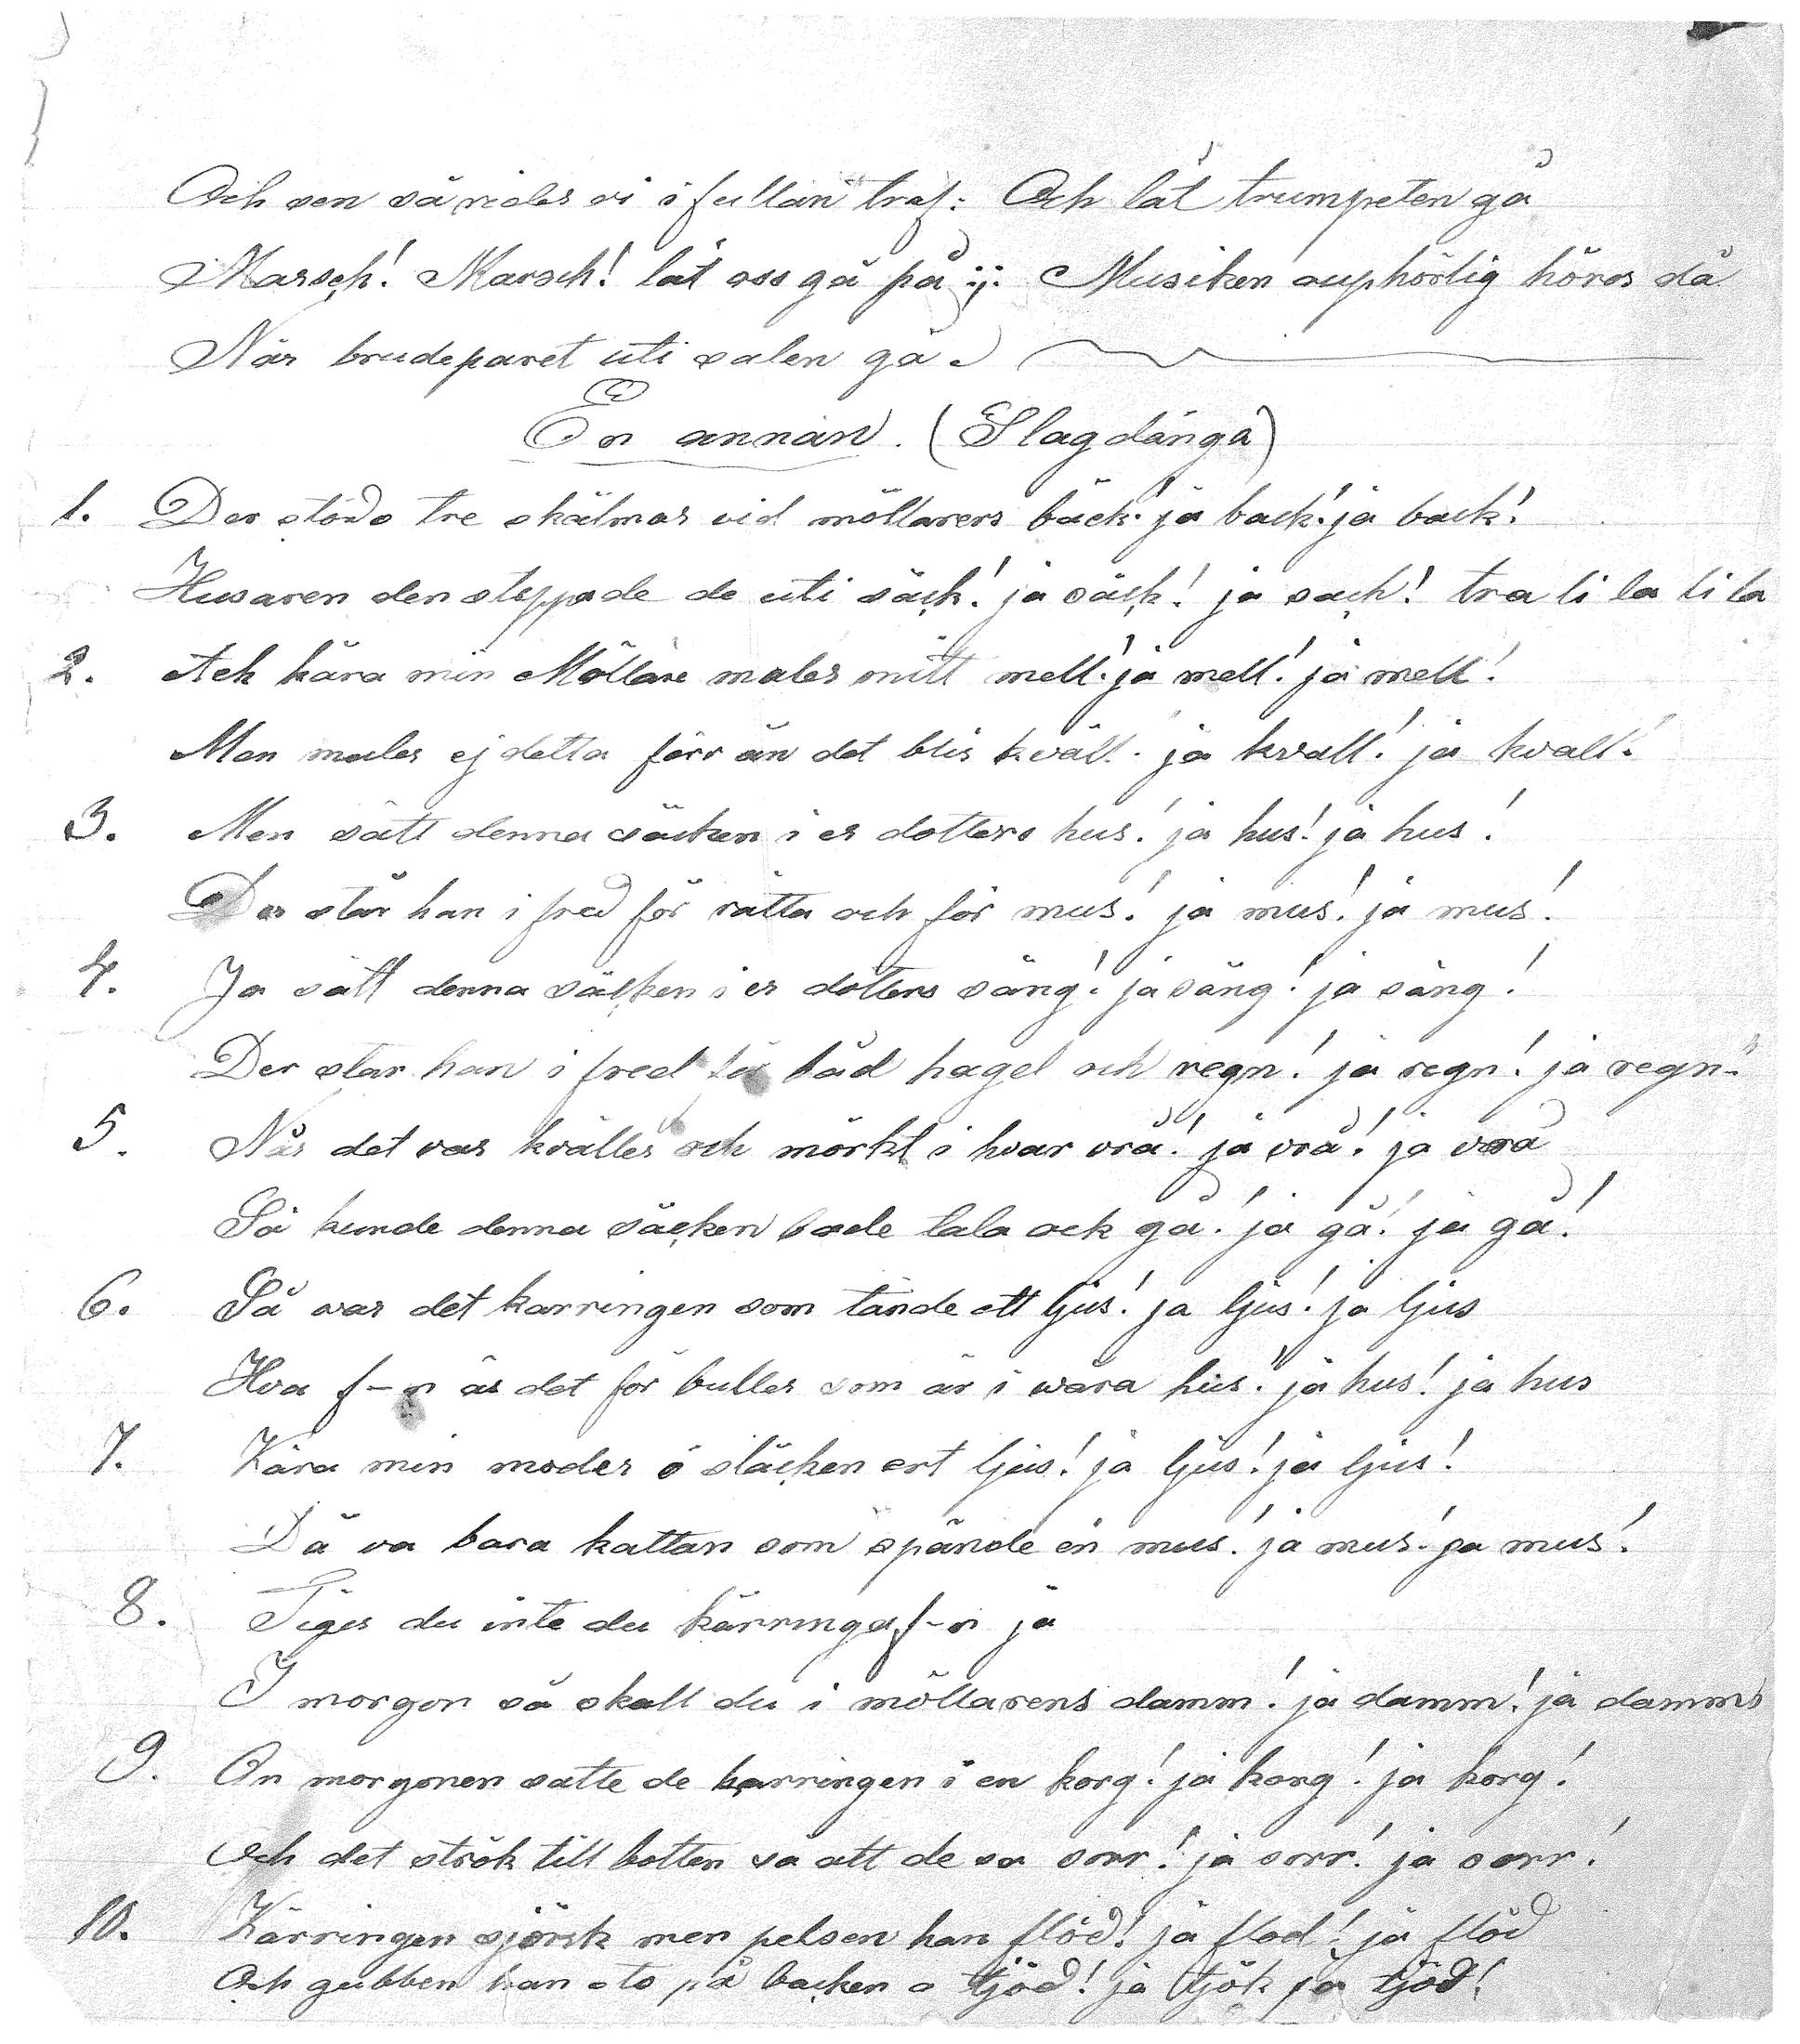 Och sen så rider vi i fullan traf: Och låt trumpeten gå
Marsch! Marsch! låt oss gå på :,: Musiken auphörlig höres då
När brudeparet uti salen gå.
En annan. (Slagdånga)
1. Der stodo tre skälmar vid möllarens bäck! ja bäck! ja bäck!
Husaren den stoppade de uti säck! ja säck! ja säck! tra li la li la
2. Ack kära min Möllare maler mitt mell! ja mell! ja mell!
Men maler ej detta förr än det blir kväll! ja kväll! ja kväll!
3. Men sätt denna säcken i er dotters hus! ja hus! ja hus!
Der står han i fred för råtta och för mus! ja mus! ja mus!
4. Ja sätt denna säcken i er dotters säng! ja säng! ja säng!
Der står han i fred för båd hagel och regn! ja regn! ja regn!
5. När det var kväller och mörkt i hvar vrå! ja vrå! ja vrå
Så kunde denna säcken både tala ock gå! ja gå! ja gå!
6. Så var det karringen som tände ett ljus! ja ljus! ja ljus
Hva f-n är det för buller som är i våra hus! ja hus! ja hus
7. Kära min moder ö släcken ert ljus! ja ljus! ja ljus!
Då va bara kattan som spände en mus! ja mus! ja mus!
8. Tiger du inte du kärringa f-n ja
I morgon så skall du i möllarens damm! ja damm! ja damms
9. On morgonen satte de karringen i en korg! ja korg! ja korg!
Och det strök till botten så att de sa sorr! ja sorr! ja sorr!
10. Kärringen sjönk men pelsen han flöd! ja flöd! ja flöd
Och gubben han sto på backen o tjöd! ja tjök ja tjöd!